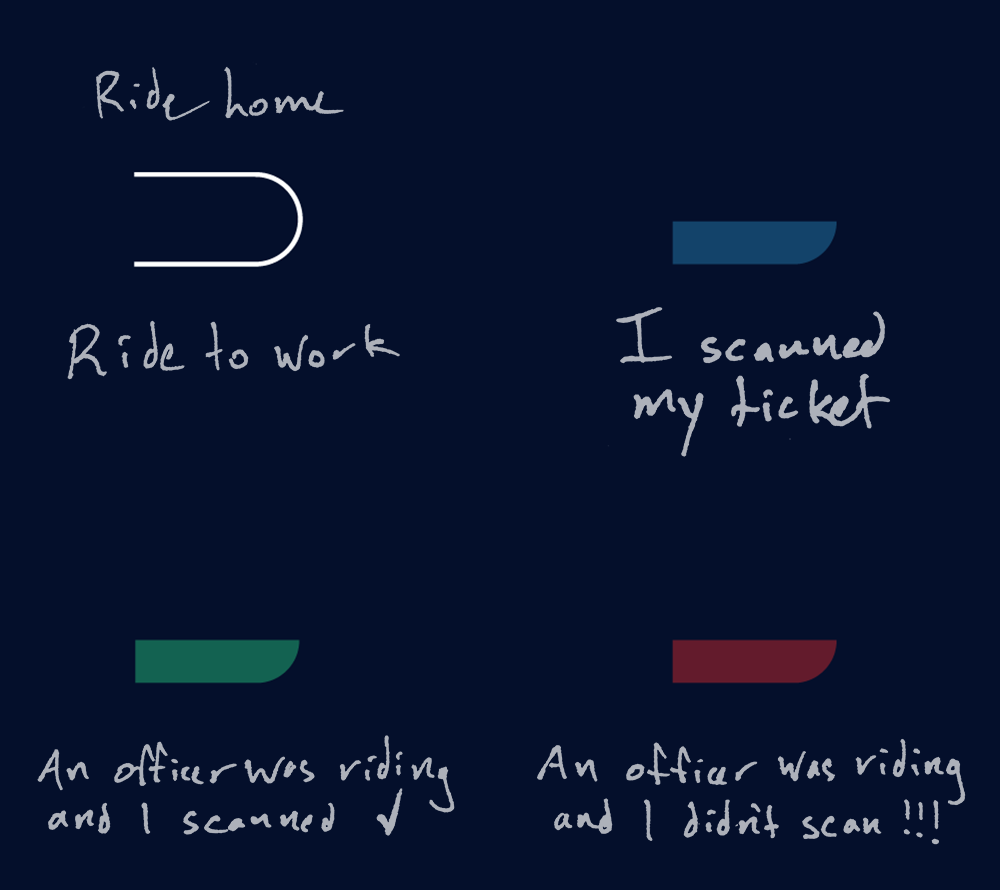 Ride home
Ride to work
I scanned
my ticket
An officer was riding
and I scanned ✓
An officer was riding
and I didn't scan !!!